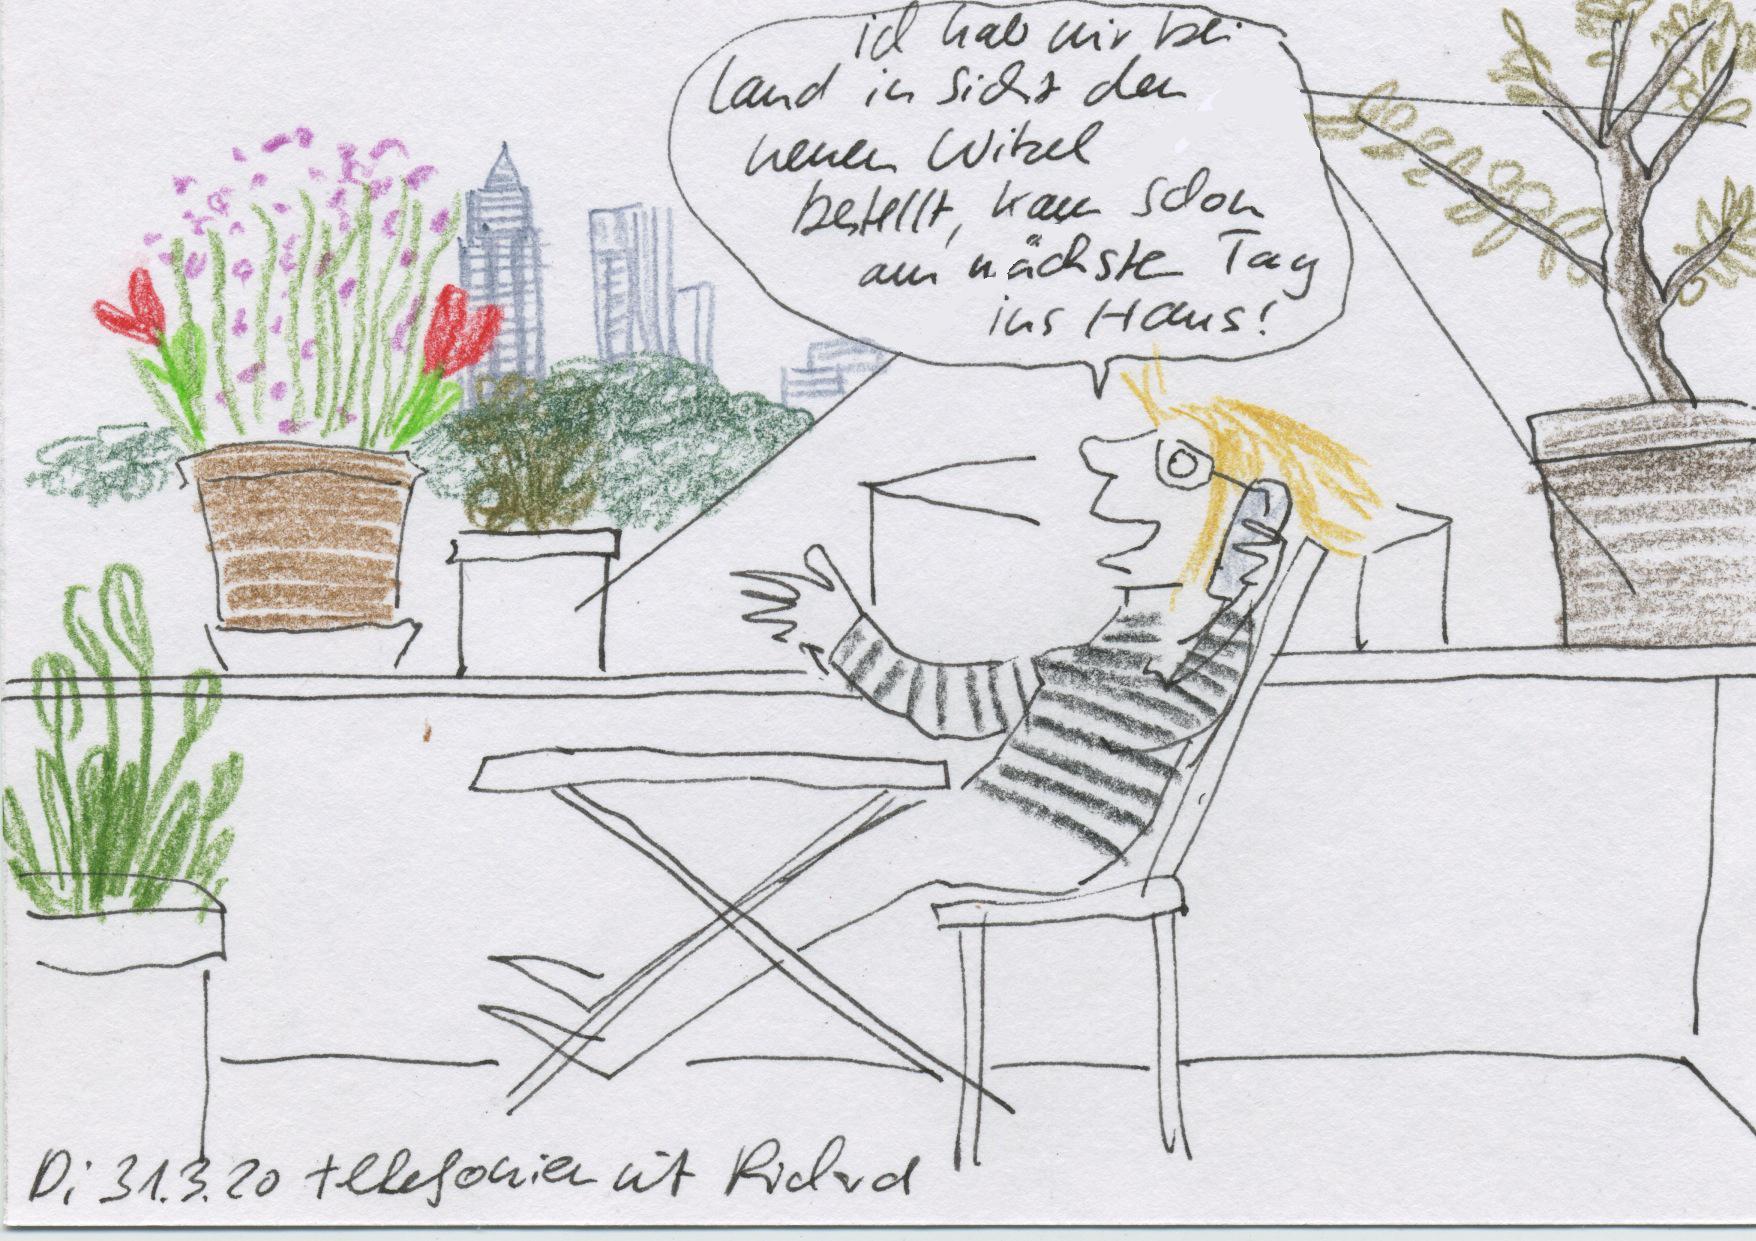 ich hab mir bei
Land in Sicht den
neuen Witzel
bestellt, kam schon
am nächste Tag
ins Haus!
Di 31.3.20 telefonieren mit Richard